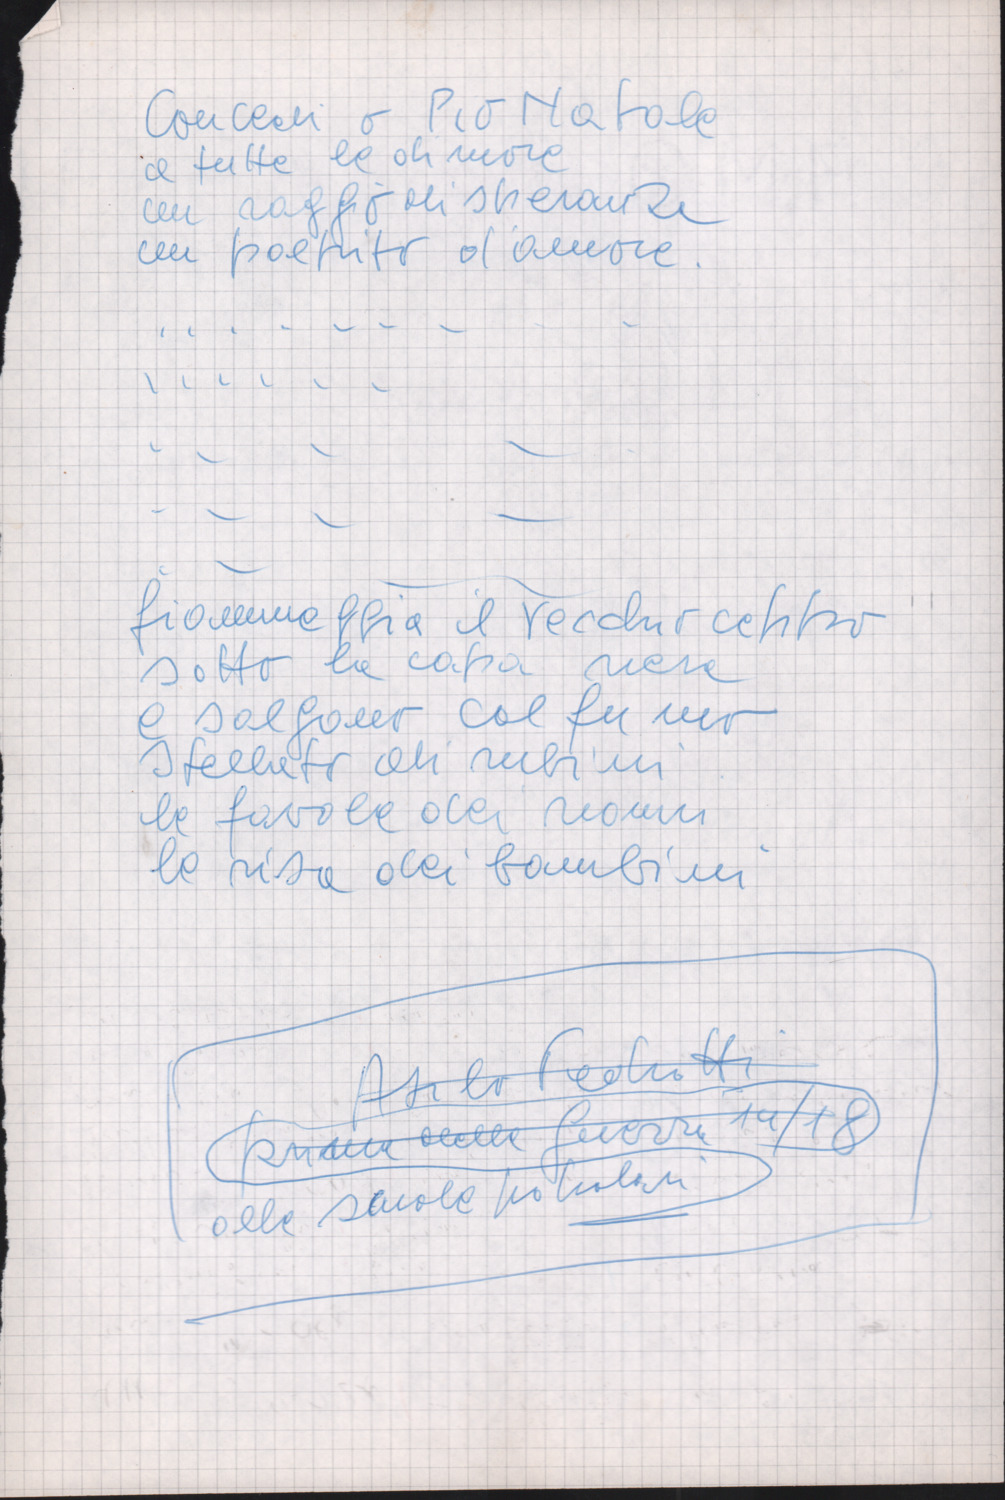 Concedi o Pio Natale
a tutte le dimore
un raggio di speranza
un palpito d'amore.
fiammeggia il vecchio ceppo
sotto la capa nera
e salgono col fumo
stellato di rubini
le favole dei nonni
le risa dei bambini
Asilo Pedrotti
prima della guerra 14/18
alle scuole popolari